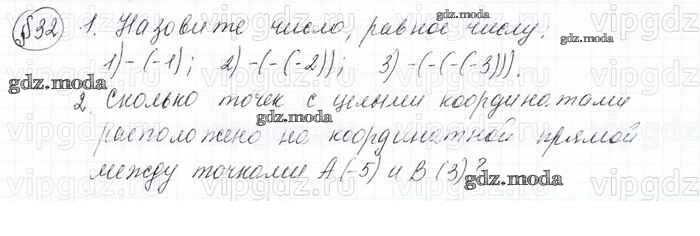 §32 1. Назовите число, равное числу:
1) -(-1); 2) -(-(-2)); 3) -(-(-(-3))).
2. Сколько точек с целыми координатами
расположено на координатной прямой
между точками A(-5) и B(3)?
gdz.moda
gdz.moda
gdz.moda
gdz.moda
gdz.moda